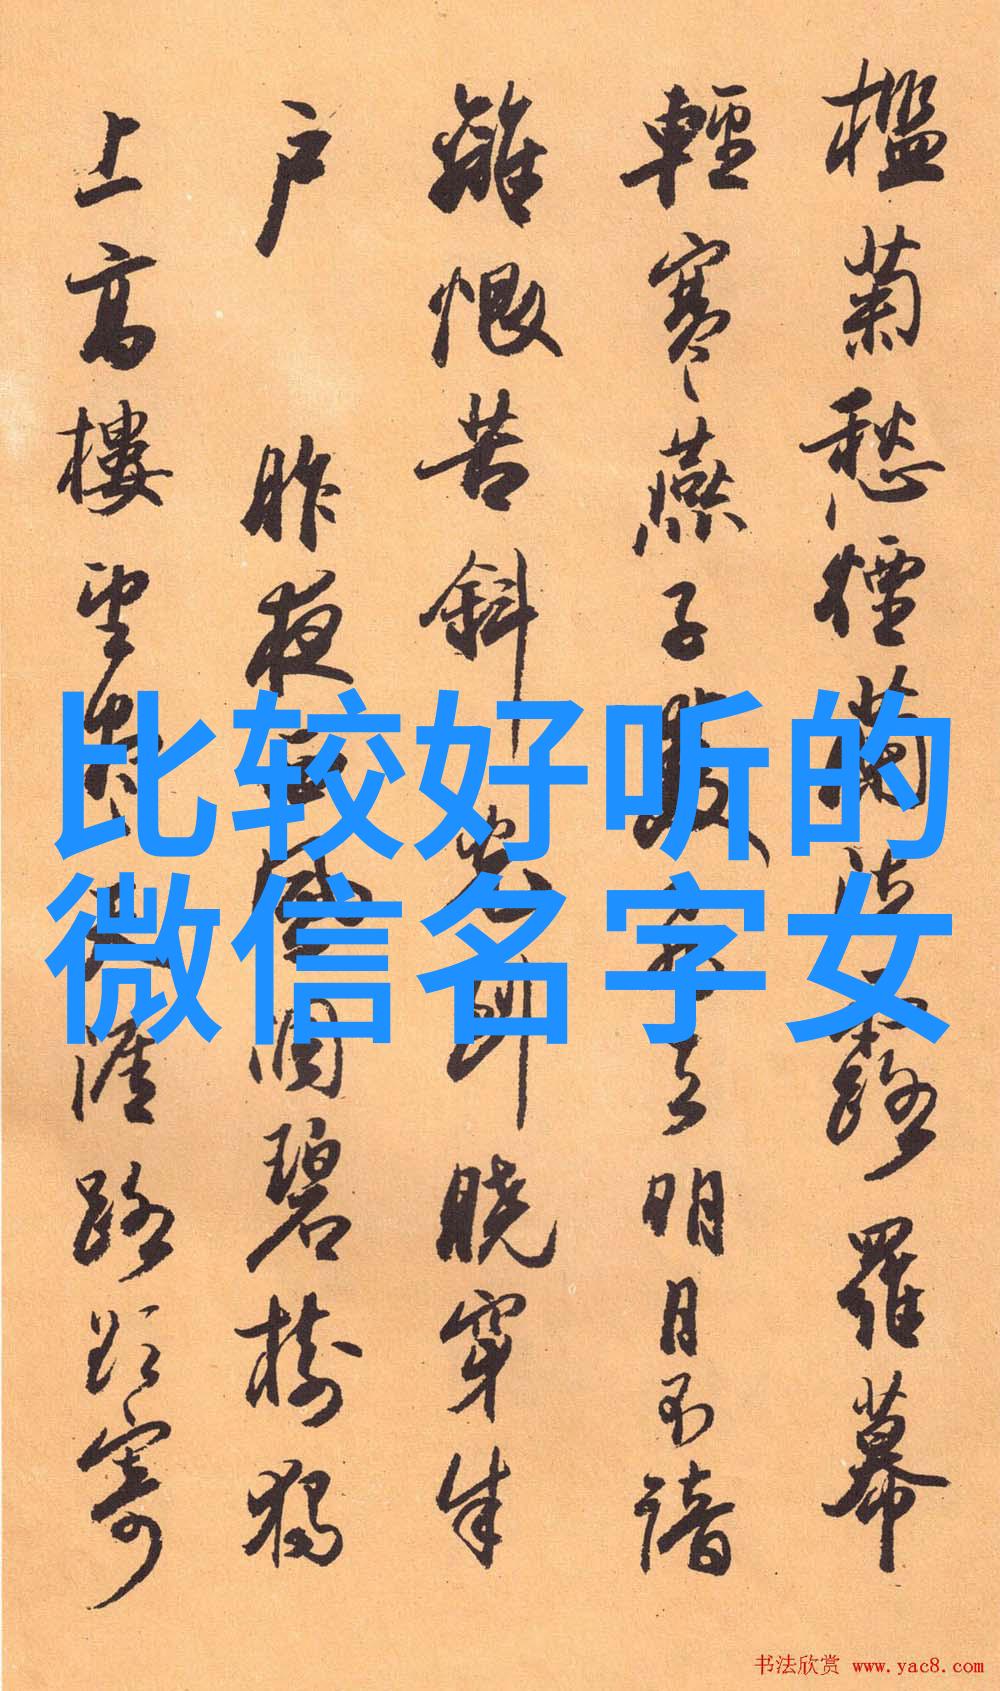 檻菊愁煙蘭泣露羅幕
輕寒燕子雙飛去明月不諳
離恨苦斜光到曉穿朱
户 昨夜西風凋碧樹獨
上高樓望盡天涯路欲寄
比较好听的
微信名字女
书法欣赏 www.yac8.com